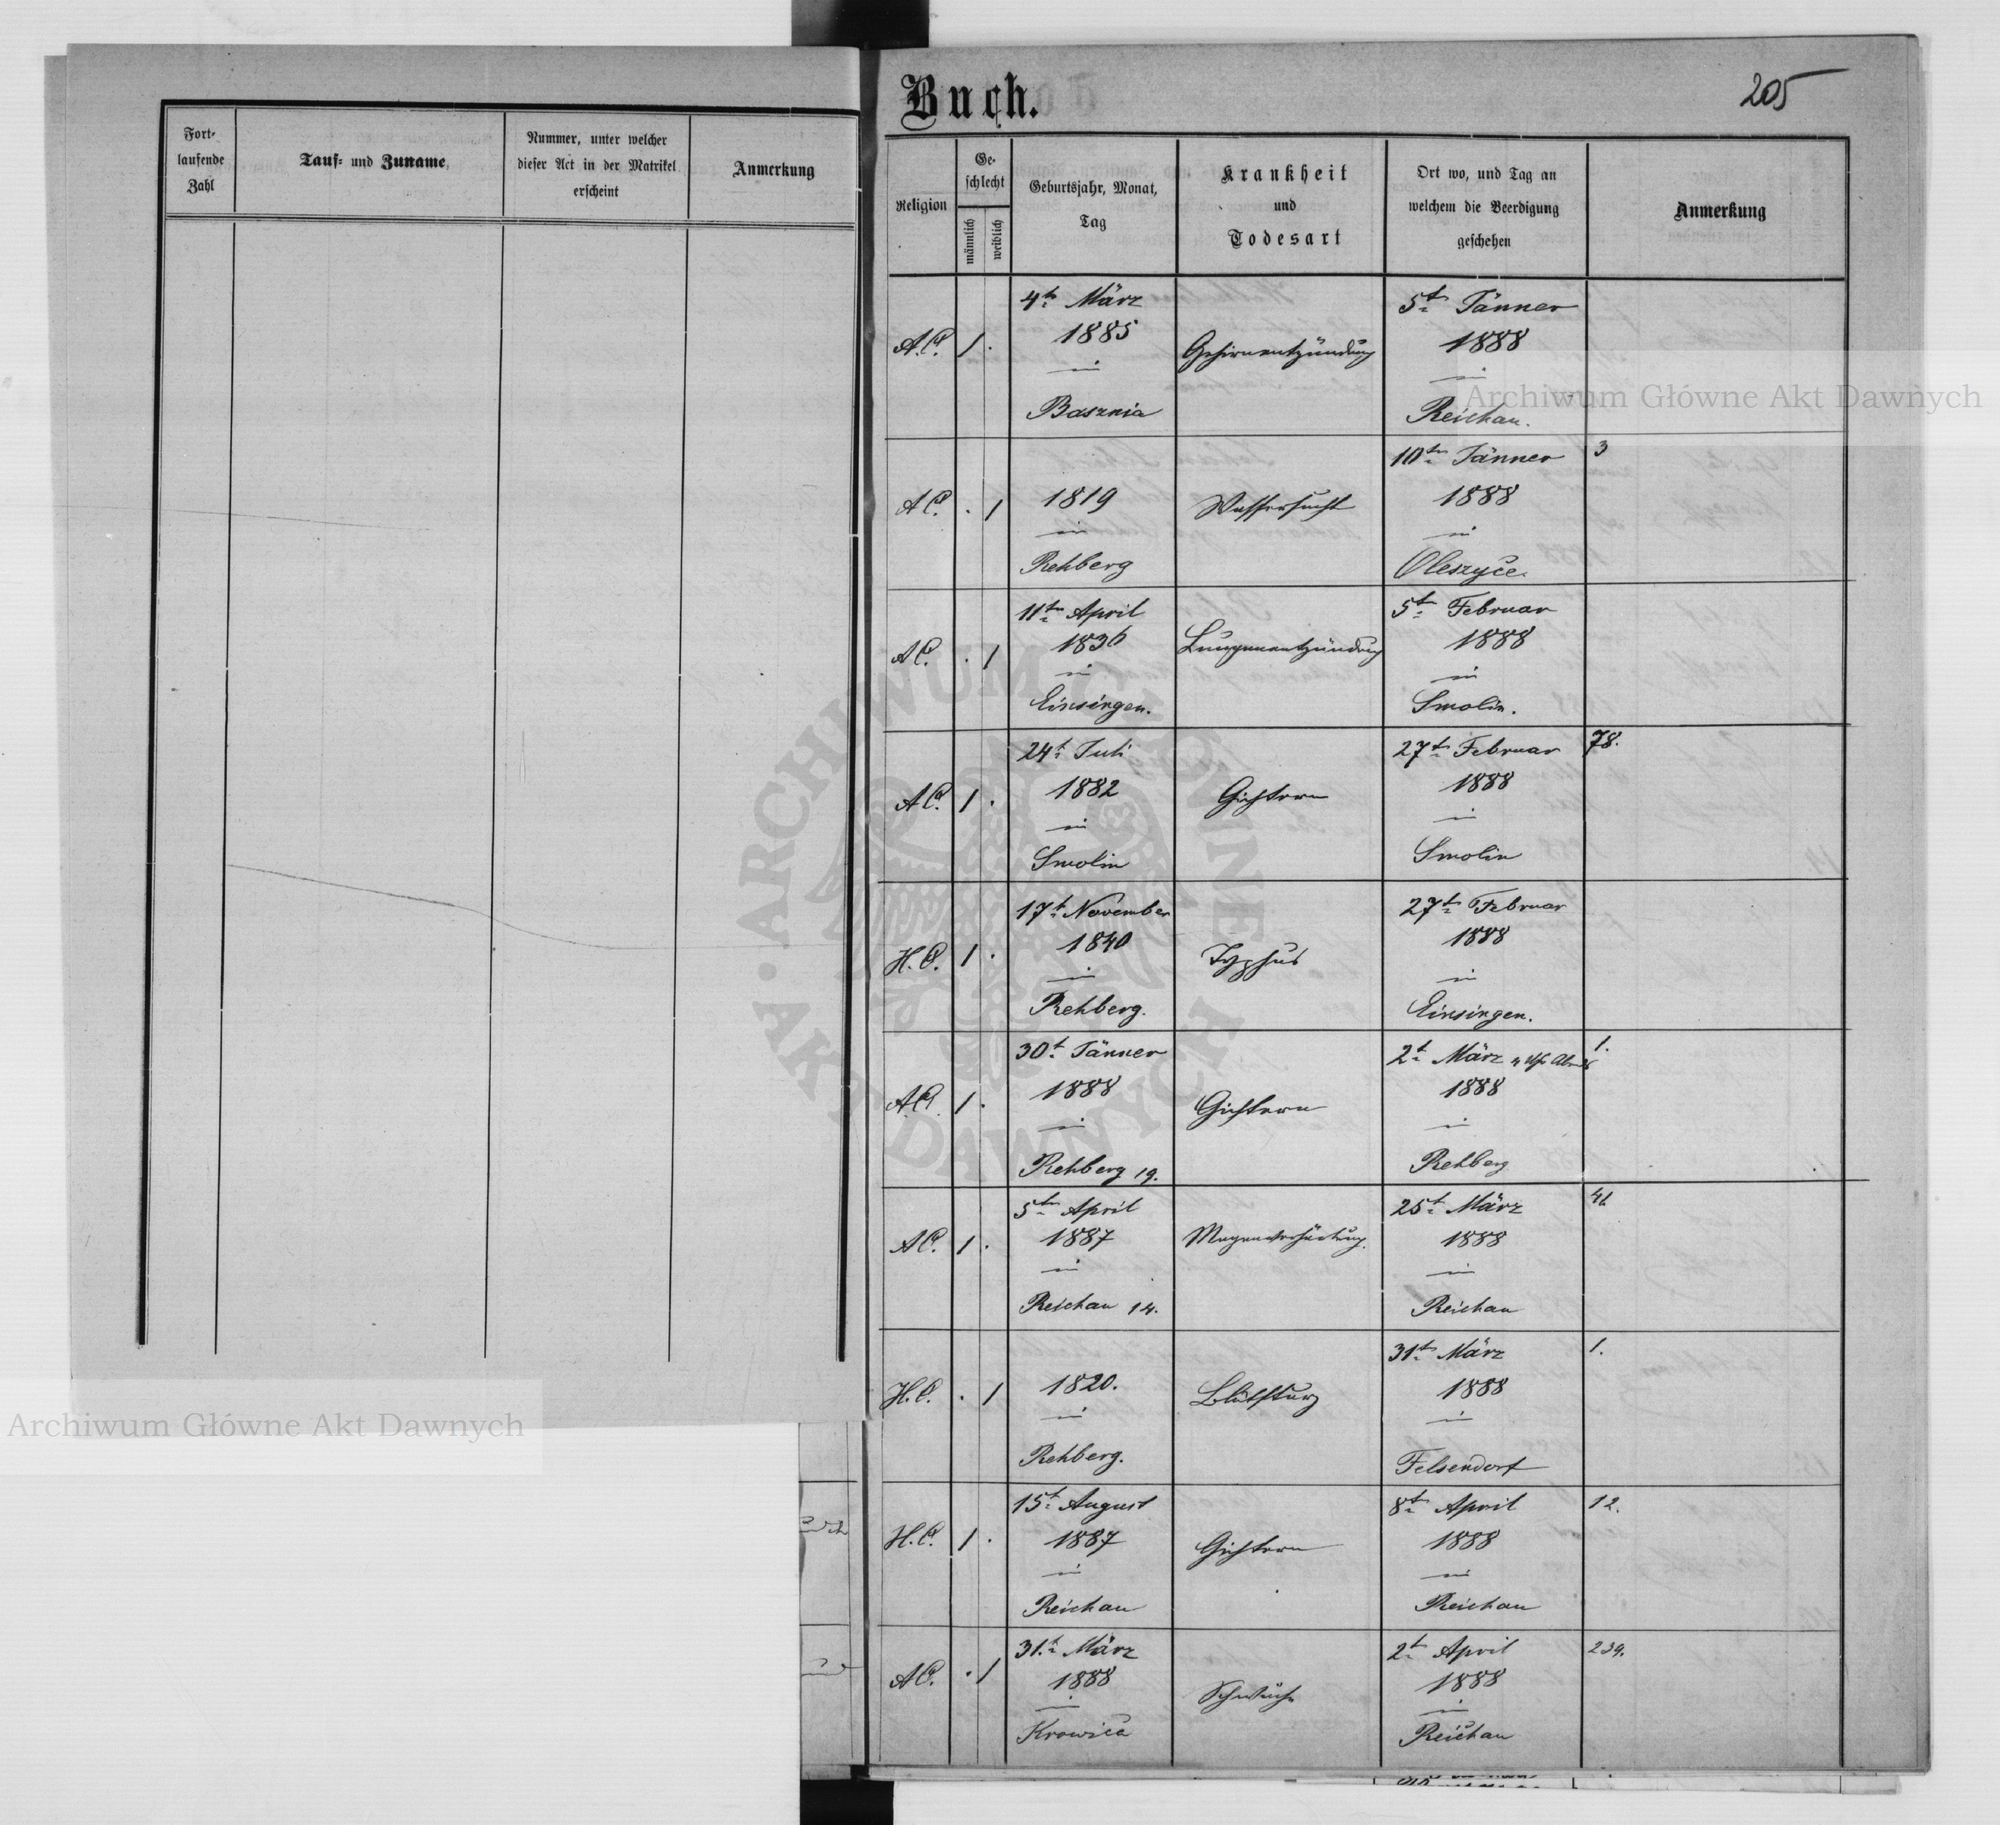 Buch.
205
Fort-
laufende
Zahl
Tauf- und Zuname
Nummer, unter welcher
dieser Act in der Matrikel
erscheint
Anmerkung
Religion
Ge-
schlecht
männlich
weiblich
Geburtsjahr, Monat,
Tag
Krankheit
und
Todesart
Ort wo, und Tag an
welchem die Beerdigung
geschehen
Anmerkung
4t März
1885
in
Basznia
A.C.
1 .
Gehirnentzündung
5t Jänner
1888
in
Reichau.
1819
in
Rehberg
A C.
. 1
Wassersucht
10tn Jänner
1888
in
Oleszyce.
3
11tn April
1836
in
Einsingen.
A C.
. 1
Lungenentzündung
5tn Februar
1888
in
Smolin.
24t Juli
1882
in
Smolin
A C.
1 .
Gichtern
27tn Februar
1888
in
Smolin
78.
17t November
1840
in
Rehberg.
H. C.
1 .
Typhus
27tn Februar
1888
in
Einsingen.
30t Jänner
1888
in
Rehberg 19.
A.C.
1 .
Gichtern
2t März
1888
in
Rehberg
1.
5tn April
1887
in
Reichau 14.
A C.
1 .
Magenverhärtung.
25t März
1888
in
Reichau
1820.
in
Rehberg.
H. C.
. 1
Blutsturz
31tn März
1888
in
Felsendorf
1.
15t August
1887
in
Reichau
H. C.
1 .
Gichtern
8tn April
1888
in
Reichau
12.
31.t März
1888
in
Krowica
A C.
. 1
Schwäche
2tn April
1888
in
Reichau
234.
Archiwum Główne Akt Dawnych
Archiwum Główne Akt Dawnych
ARCHIWUM GŁÓWNE
AKT DAWNYCH